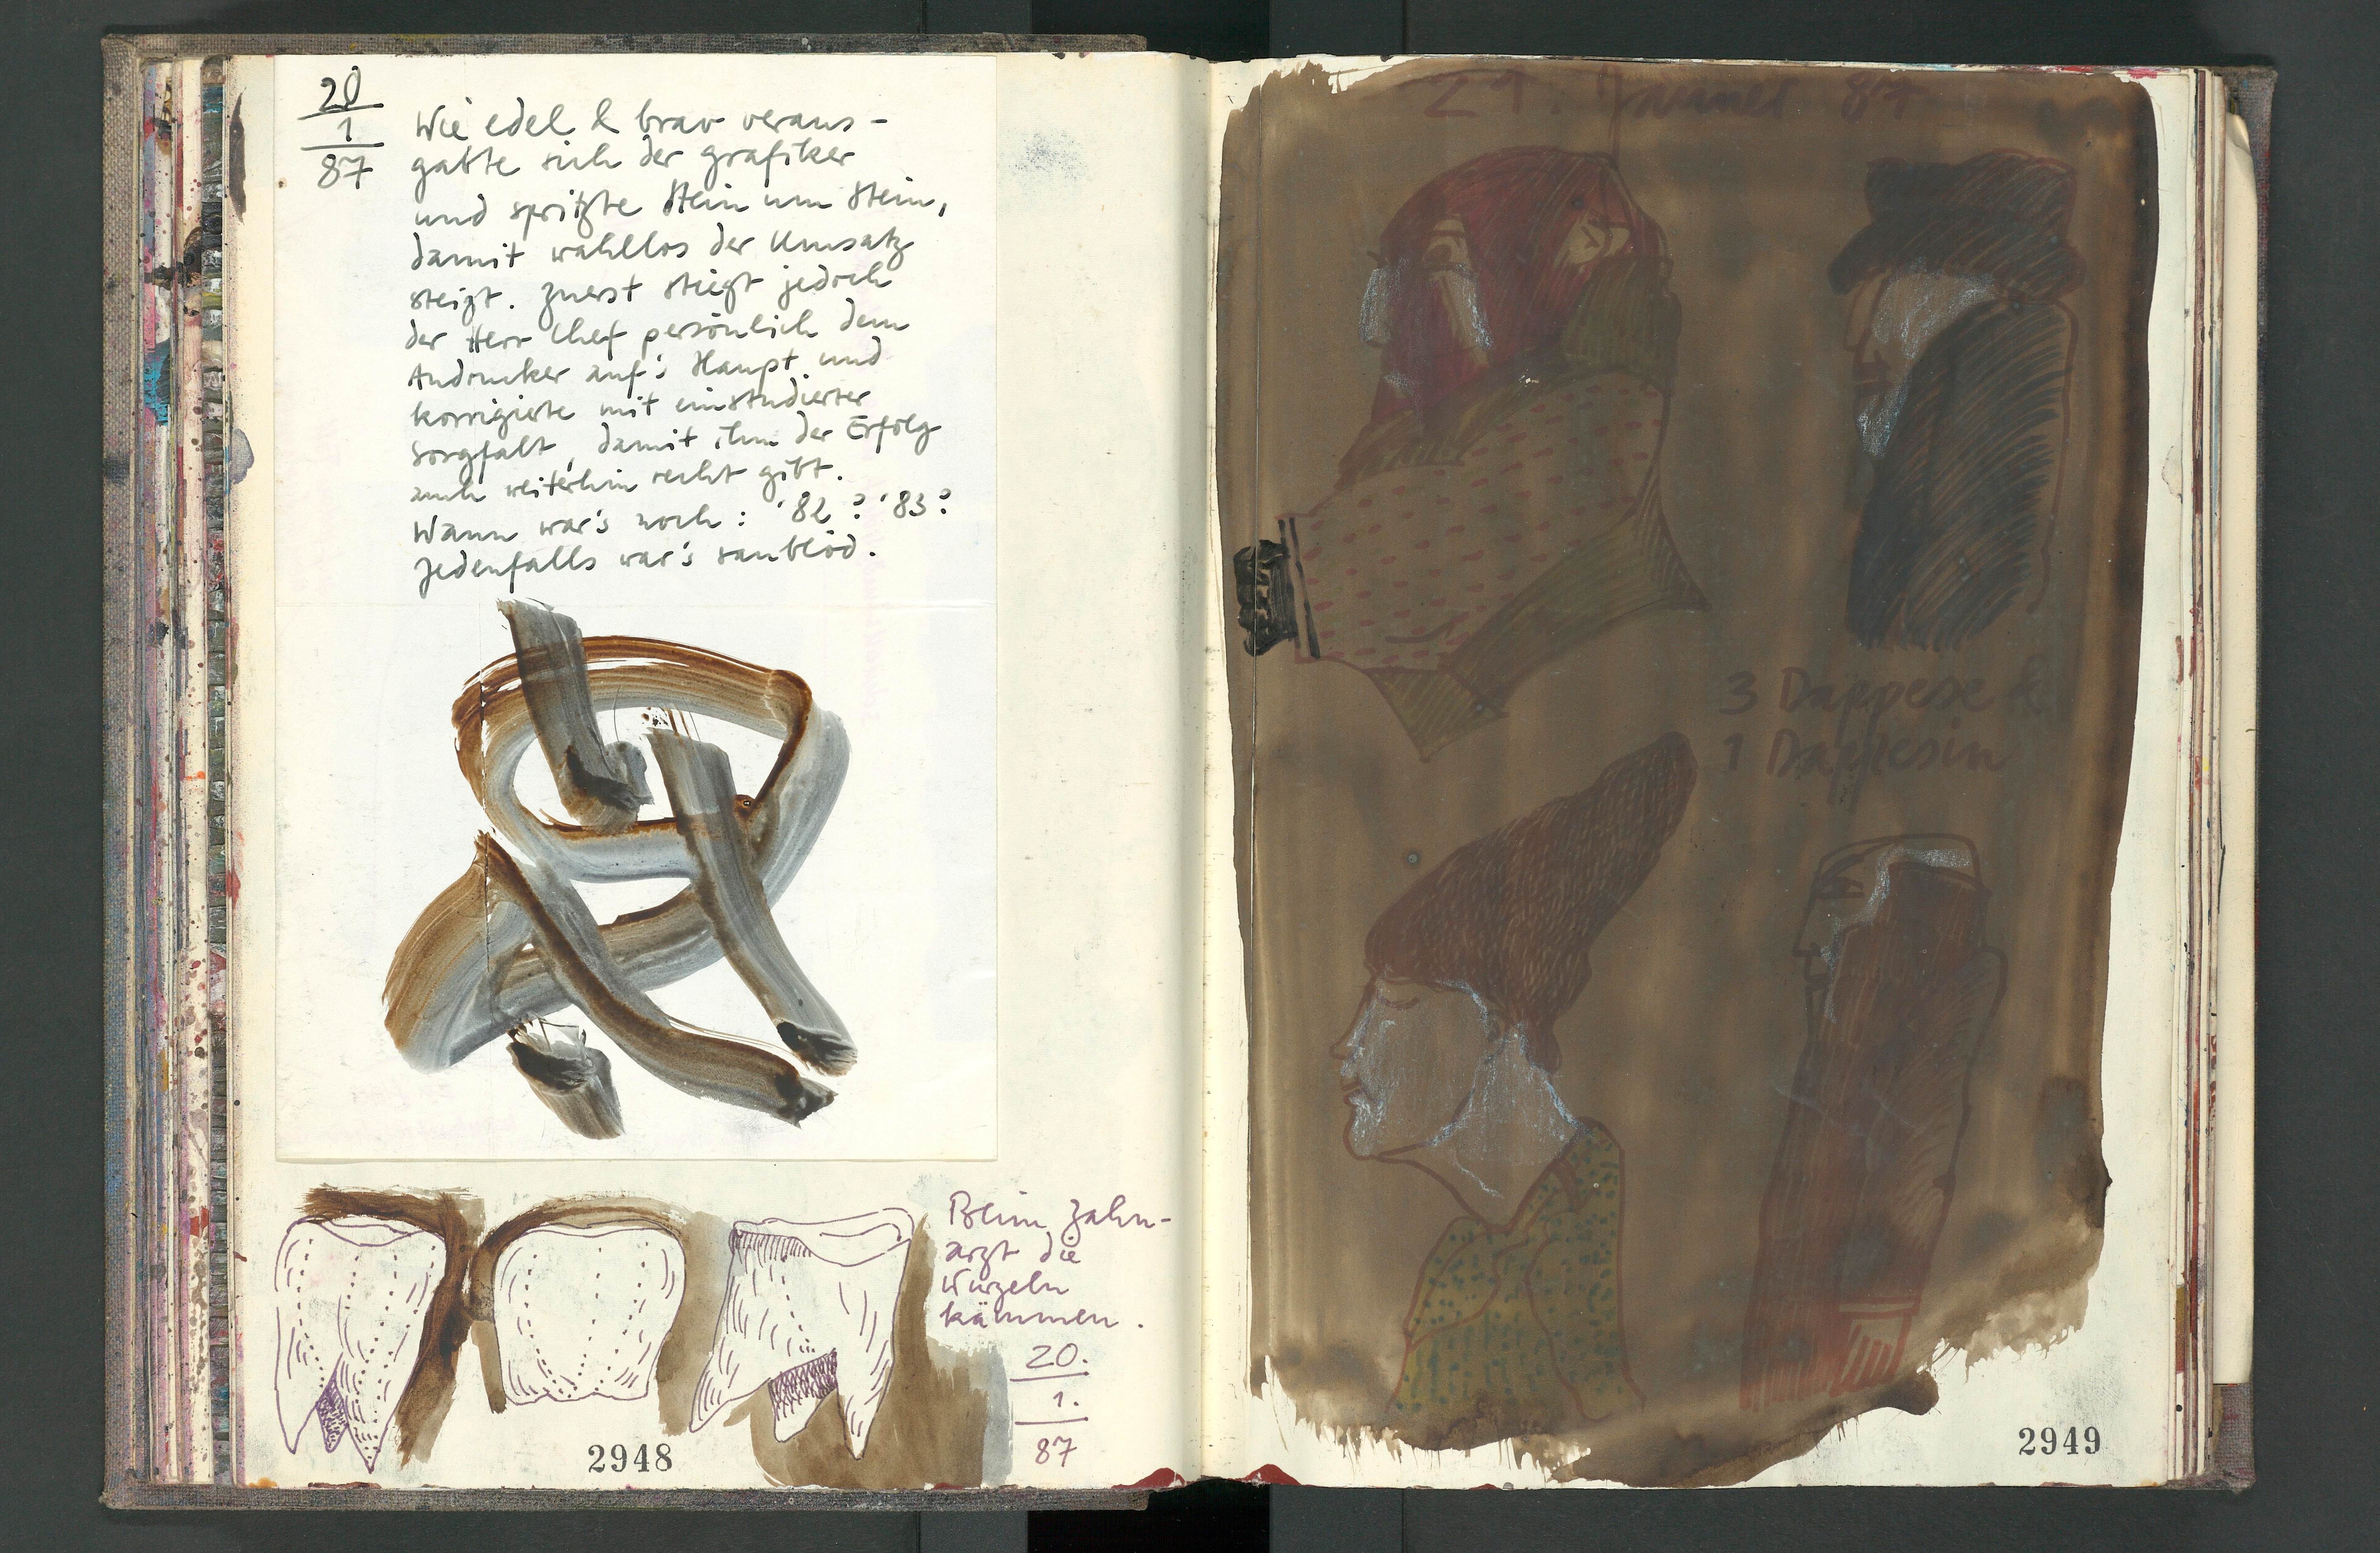 20
1
87
Wie edel & brav veraus-
gabte sich der grafiker
und spritzte Stein um Stein,
damit wahllos der Umsatz
steigt. Zuerst stiegt jedoch
der Herr Chef persönlich dem
Andrucker auf's Haupt und
korrigierte mit einstudierter
Sorgfalt, damit ihm der Erfolg
auch weiterhin recht gibt.
Wann war's noch: '82? '83?
Jedenfalls war's saublöd.
Beim Zahn-
arzt die
Wurzeln
kämmen.
20.
1.
87
2948
21. Jänner 87
3 Dappese &
1 Dappesin
2949